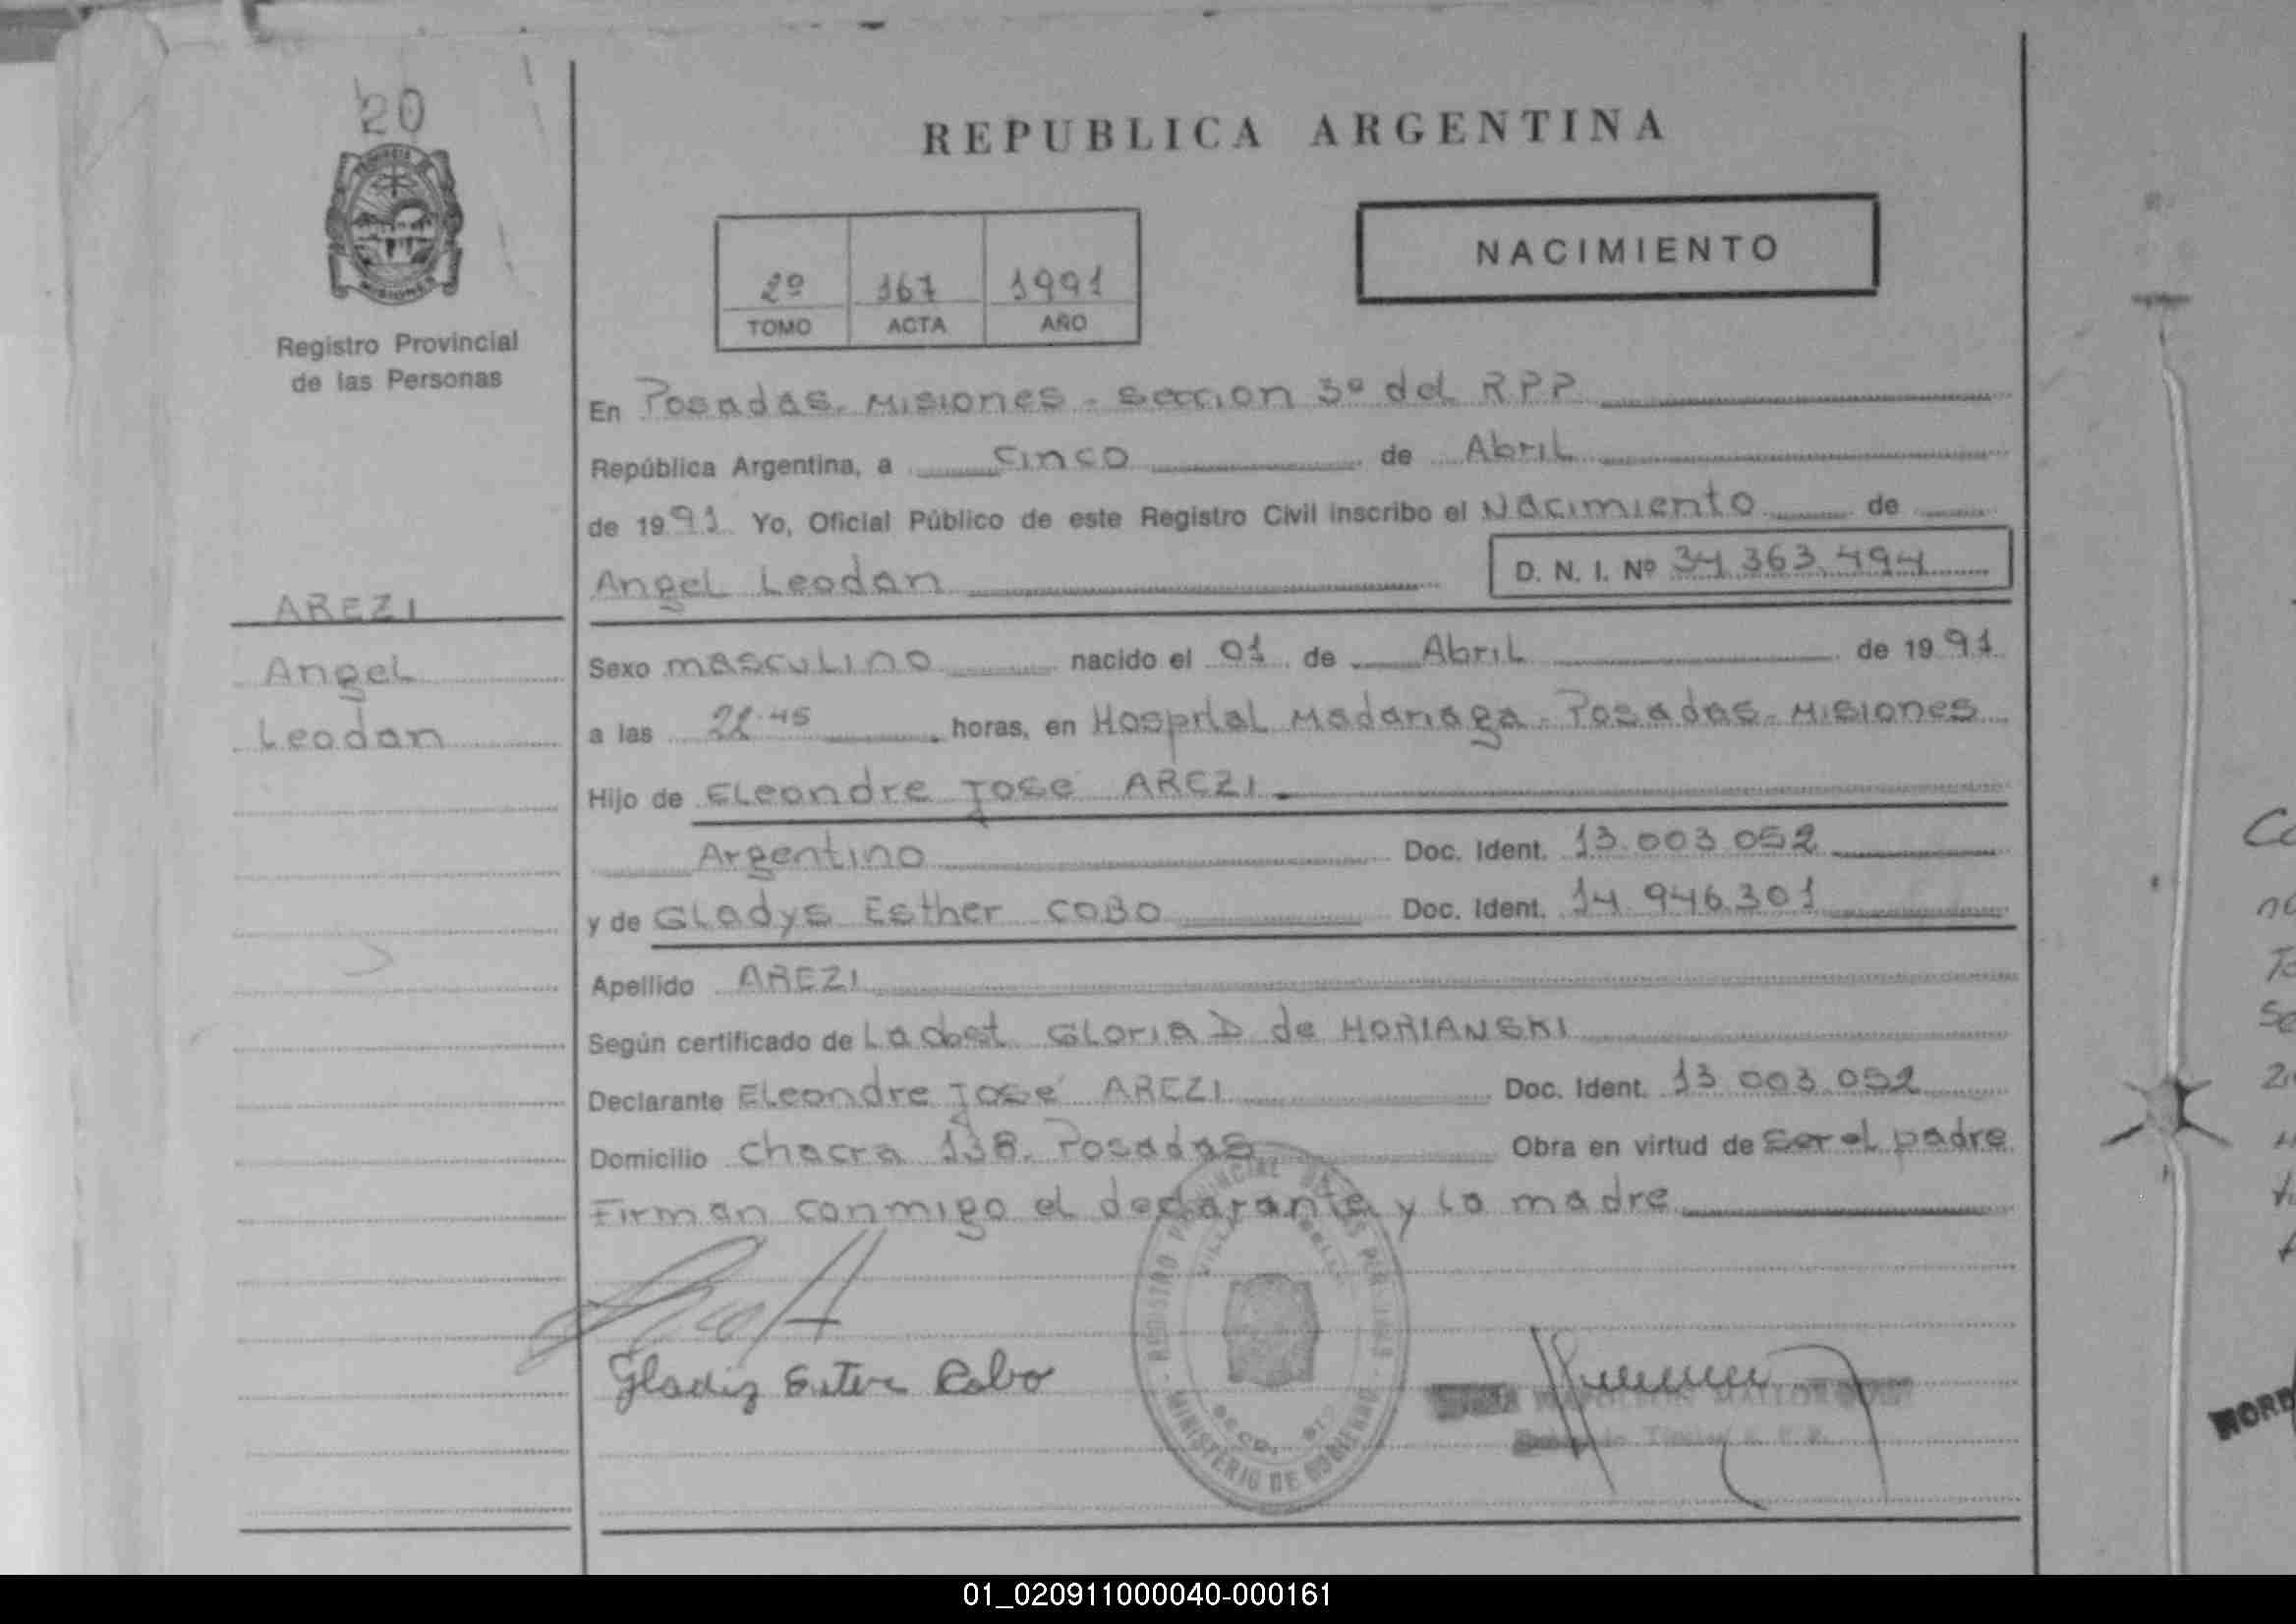 20
Registro Provincial
de las Personas
AREZI
Angel
Leodan
REPUBLICA ARGENTINA
NACIMIENTO
2º 167 1991
TOMO ACTA AÑO
En Posadas. Misiones - seccion 3º del RPP
República Argentina, a cinco de Abril
de 1991 Yo, Oficial Público de este Registro Civil inscribo el Nacimiento de
Angel Leodan D. N. I. Nº 34.363.494
Sexo masculino nacido el 01 de Abril de 1991
a las 22.45 horas, en Hospital Madariaga - Posadas - Misiones
Hijo de Eleondre José AREZI
Argentino Doc. Ident. 13.003.052
y de Gladys Esther COBO Doc. Ident. 14.946.301
Apellido AREZI
Según certificado de La obst. Gloria D de HORIANSKI
Declarante Eleondre José AREZI Doc. Ident. 13.003.052
Domicilio Chacra 138. Posadas Obra en virtud de ser el padre
Firman conmigo el declarante y la madre
Gladiz Ester Cobo
REGISTRO PROVINCIAL DE LAS PERSONAS
MINISTERIO DE GOBIERNO
NAPOLEON
01_020911000040-000161